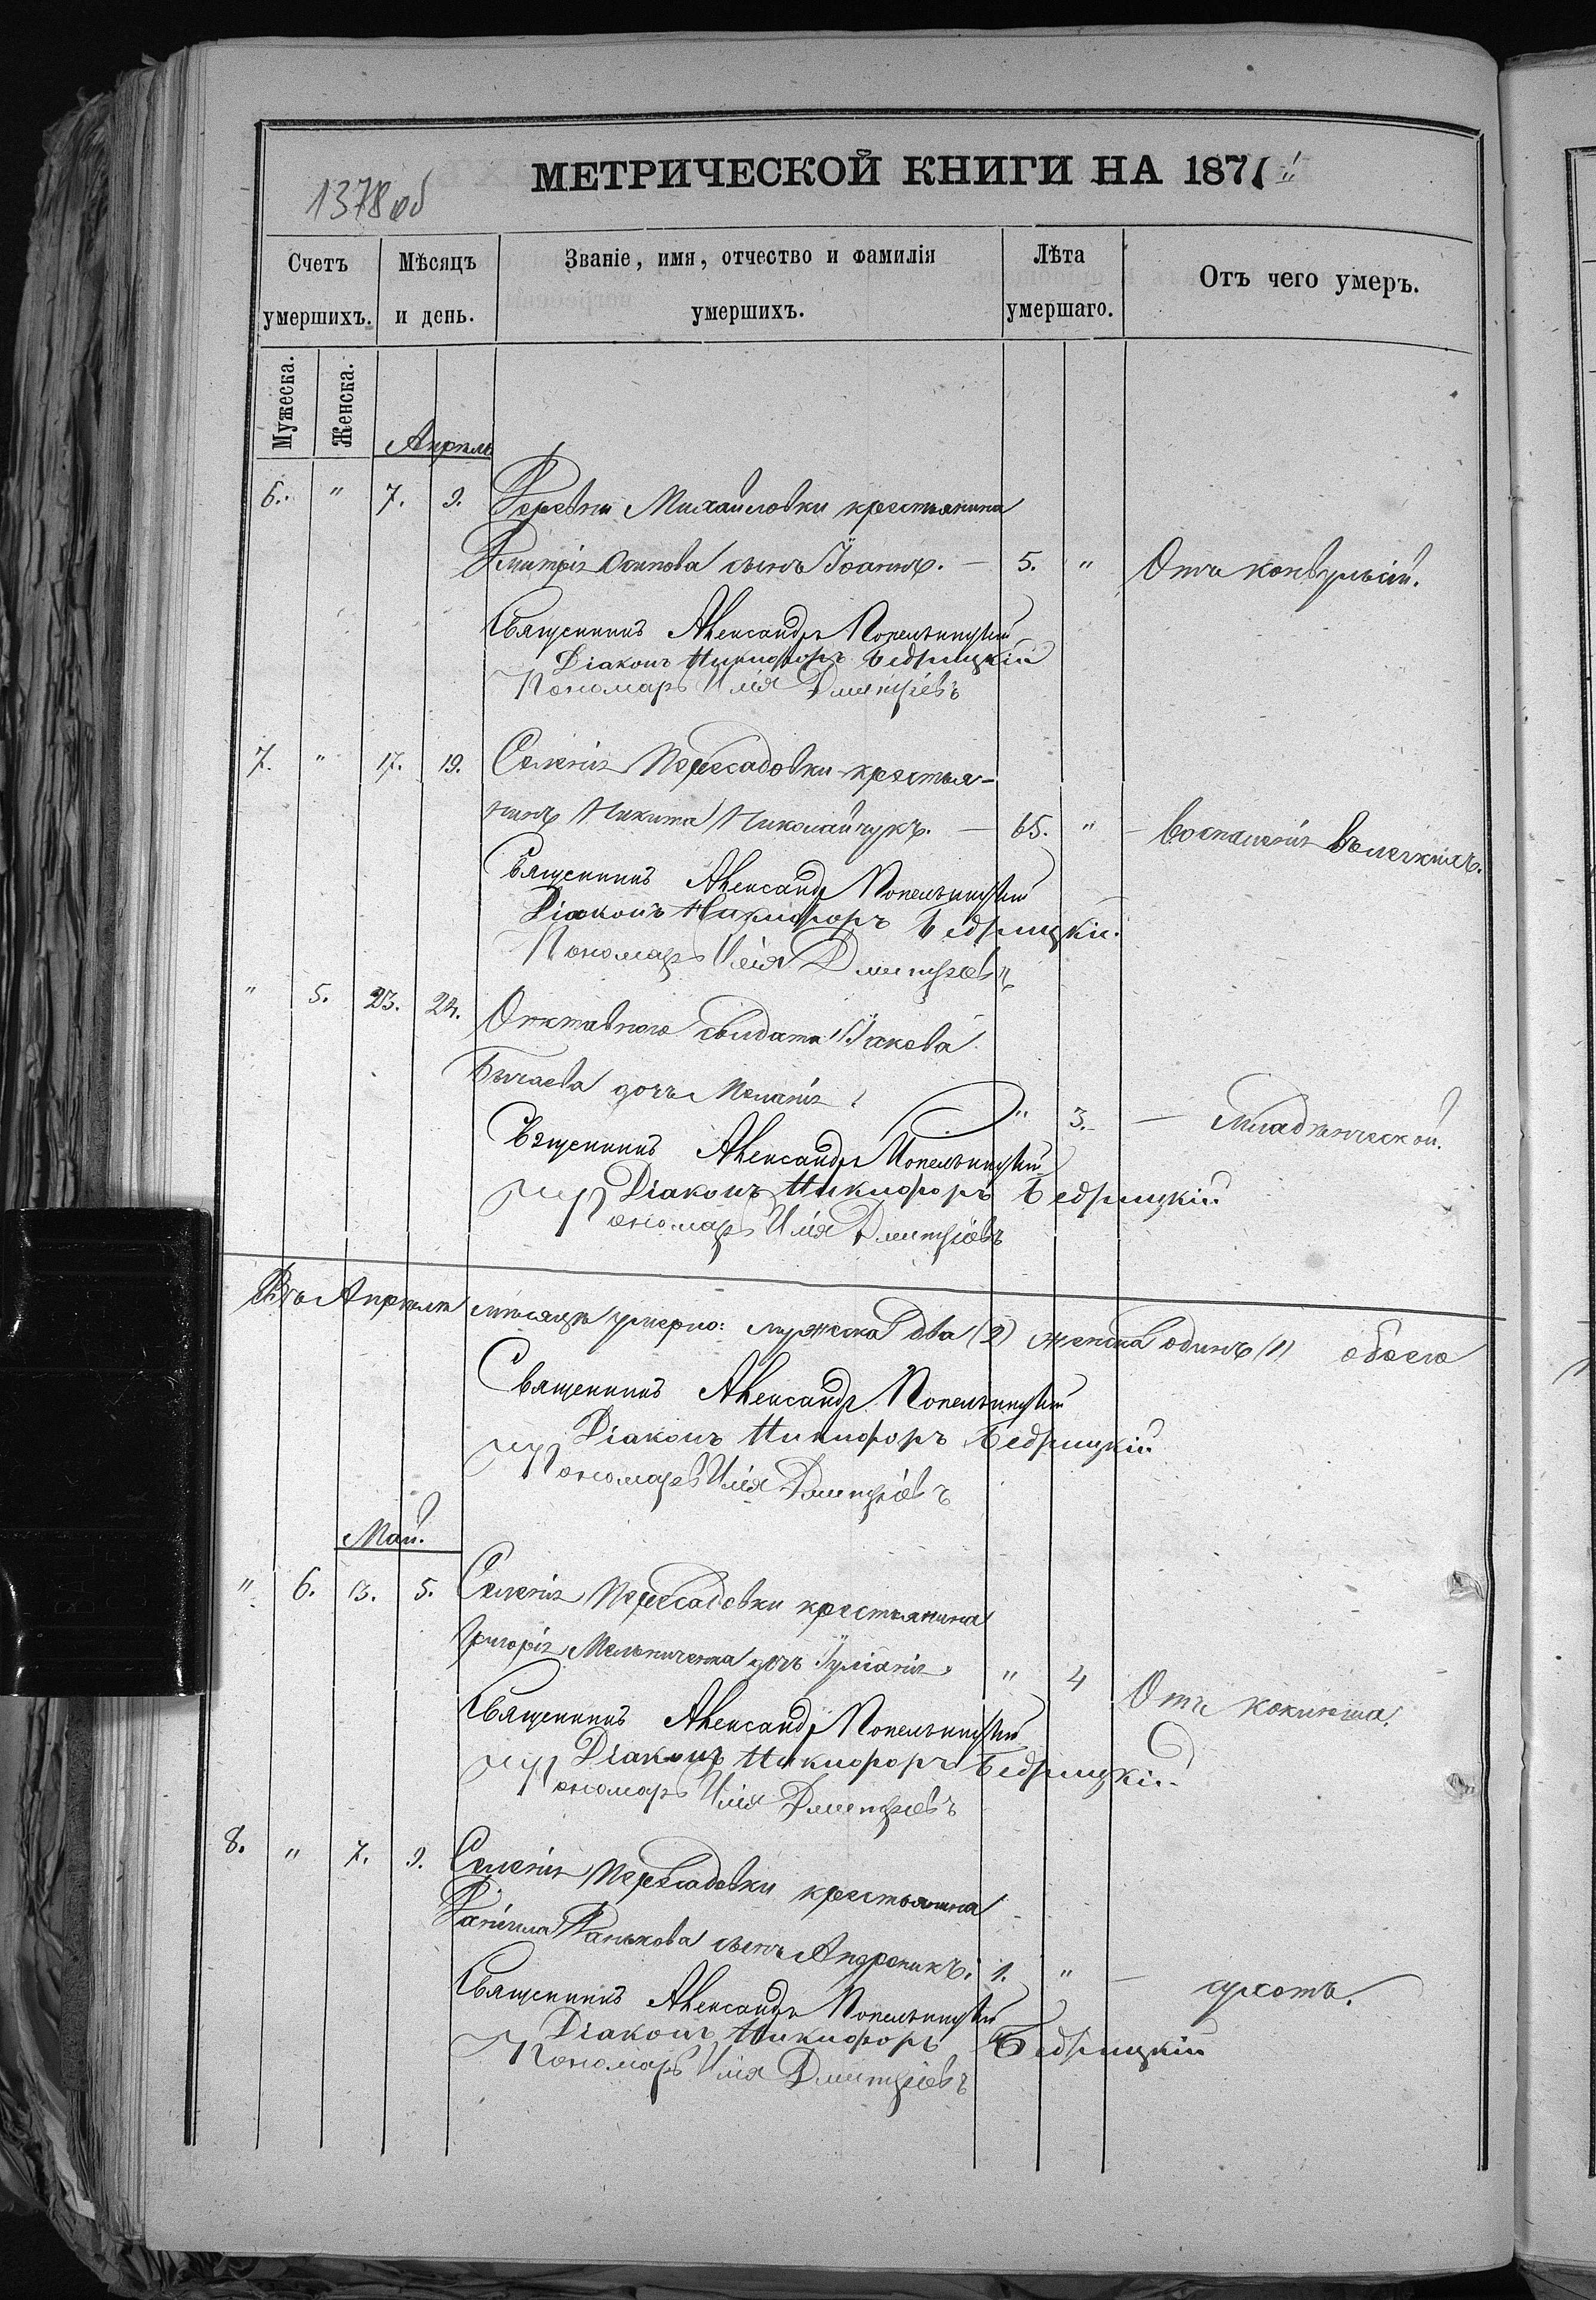 1378 об
МЕТРИЧЕСКОЙ КНИГИ НА 1871
Счетъ умершихъ. Мѣсяцъ и день. Званіе, имя, отчество и фамилія умершихъ. Лѣта умершаго. Отъ чего умеръ.
Мужеска. Женска.
Апрѣль
6. " 7. 9. Деревни Михайловки крестьянина
Дмитрія Осипова сынъ Іоаннъ. — 5. " Отъ конвульсій.
Священникъ Александръ Попельницкій
Діаконъ Никифоръ Бедрицкій
Пономарь Илія Дмитріевъ
7. " 17. 19. Селенія Пересадовки крестья-
нинъ Никита Николайчукъ. — 65. " — Воспаленія въ легкихъ.
Священникъ Александръ Попельницкій
Діаконъ Никифоръ Бедрицкій.
Пономарь Илія Дмитріевъ
" 5. 23. 24. Отставного солдата Іакова
дочь Меланія. " 3. — Младенческой.
Священникъ Александръ Попельницкій
Діаконъ Никифоръ Бедрицкій
Пономарь Илія Дмитріевъ
Въ Апрѣлѣ мѣсяцѣ умерло: мужеска два (2) женска одинъ (1) обоего
Священникъ Александръ Попельницкій
Діаконъ Никифоръ Бедрицкій
Пономарь Илія Дмитріевъ
Май.
" 6. 3. 5. Селенія Пересадовки крестьянина
Григорія Мельниченка дочь Іуліанія. " 4 Отъ коклюша.
Священникъ Александръ Попельницкій
Діаконъ Никифоръ Бедрицкій
Пономарь Илія Дмитріевъ
8. " 7. 9. Селенія Пересадовки крестьянина
Даніила Панькова сынъ Андроникъ. 1. " —
Священникъ Александръ Попельницкій
Діаконъ Никифоръ Бедрицкій
Пономарь Илія Дмитріевъ